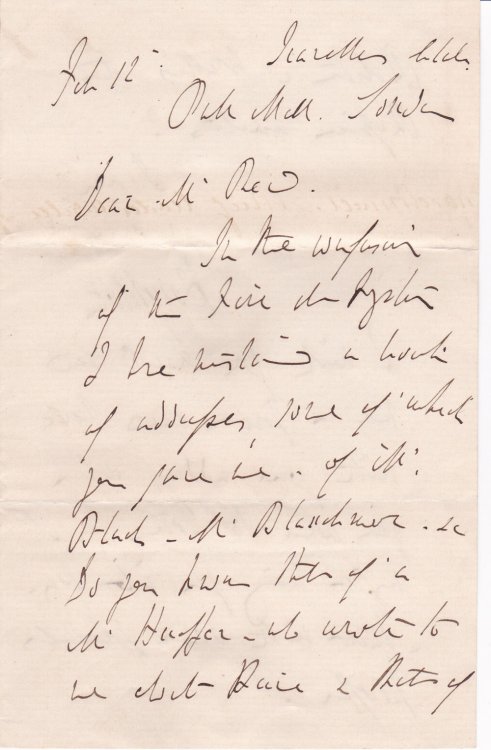 Feb 12 Travellers Club.
Pall Mall. London
Dear Mr Reid.
In the confusion
of the fire
I have mislaid a book
of addresses, some of which
you gave me. of Mr.
Black - Mr Blackmore. &c
Do you know that of a
Mr Hueffer - who wrote to
me about & that of